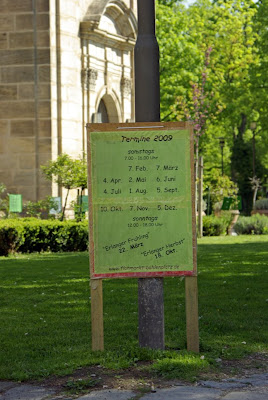 Termine 2009
samstags
7.00 - 16.00 Uhr
7. Feb. 7. März
4. Apr. 2. Mai 6. Juni
4. Juli 1. Aug. 5. Sept.
10. Okt. 7. Nov. 5. Dez.
sonntags
"Erlanger Frühling"
22. März
"Erlanger Herbst"
18. Okt.